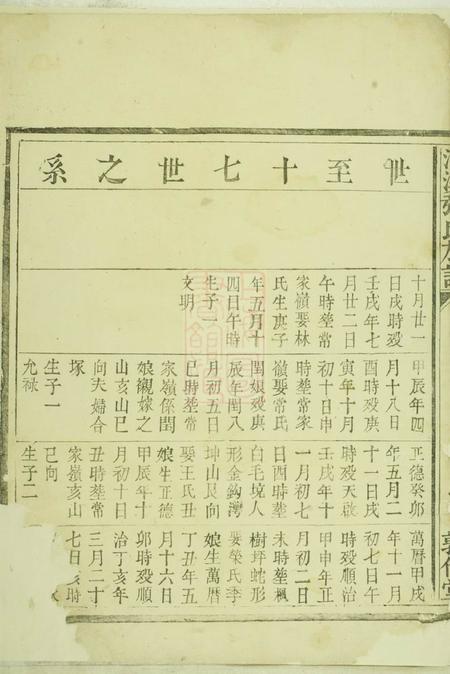 世至十七世之系
十月廿一
日戌時歿
壬戌年七
月廿二日
午時塟常
家嶺娶林
氏生庚子
年五月十
四日午時
生子一
文明
甲辰年四
月十八日
酉時歿庚
寅年十月
初十日申
時塟常家
嶺娶常氏
閏娘歿庚
辰年閏八
月初五日
巳時塟常
家嶺係閏
娘襯嫁之
山亥山巳
向夫婦合
塚
生子一
允祿
正德癸卯
年五月二
十一日戌
時歿天啟
壬戌年十
一月初七
日酉時塟
白毛境人
形金鈎灣
坤山艮向
娶王氏丑
娘生正德
甲辰年十
月初十日
丑時塟常
家嶺亥山
巳向
生子二
萬曆甲戌
年十一月
初七日午
時歿順治
甲申年正
月初二日
未時塟楓
樹坪蛇形
娶榮氏季
娘生萬曆
丁丑年五
月十六日
卯時歿順
治丁亥年
三月二十
七日 時